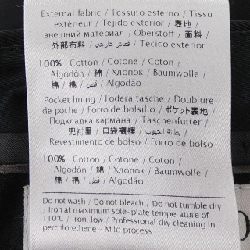 External fabric / Tessuto esterno / Tissu
extérieur / Tejido exterior / 表地 /
внешний материал / Oberstoff / 面料 /
外部布料 / قماش خارجي / Tecido exterior
100% Cotton / Cotone / Coton /
Algodón / 綿 / Хлопок / Baumwolle /
棉 / 棉 / قطن / Algodão
Pocket lining / Fodera tasche / Doublure
de poche / Forro de bolsillo / ポケット裏地 /
Подкладка кармана / Taschenfutter /
口袋襯裡 /
Revestimento de bolso / Forro de bolso
100% Cotton / Cotone / Coton /
Algodón / 綿 / Хлопок / Baumwolle /
棉 / 棉 / قطن / Algodão
Do not wash / Do not bleach / Do not tumble dry
/ Iron at maximum sole-plate temperature of
110°C / Professional dry cleaning in
process